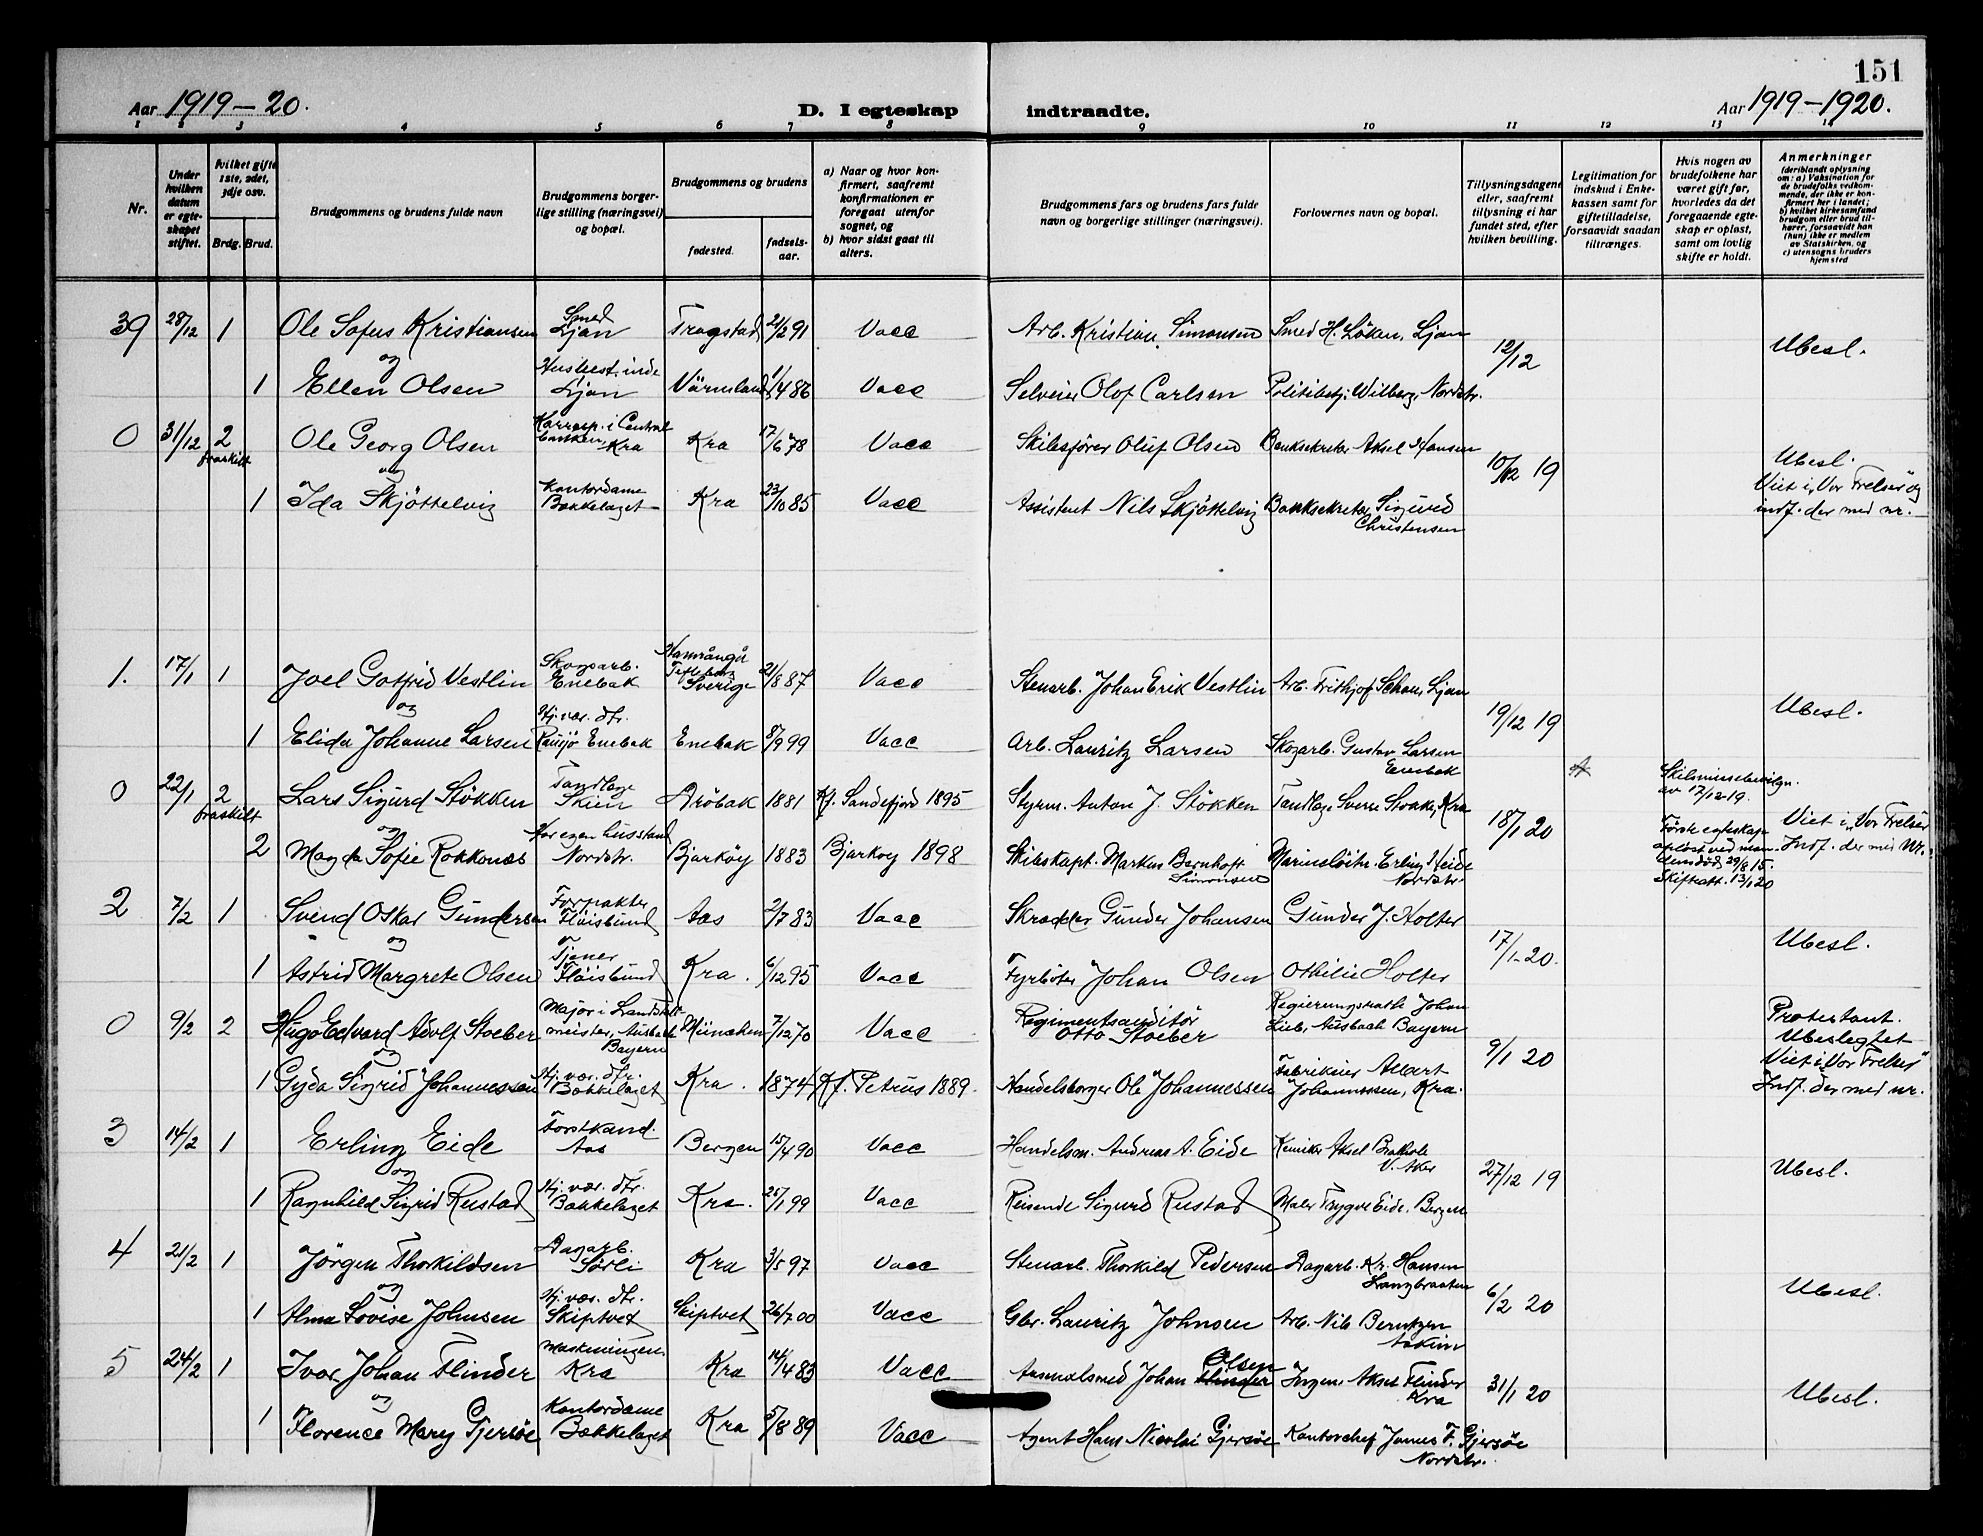 151
Aar 1919-20.
D. I egteskap indtraadte.
Aar 1919-1920.
1 2 3 4 5 6 7 8 9 10 11 12 13 14
Nr.
Under hvilken datum er egteskapet stiftet.
hvilket gifte 1ste, 2det, 3dje osv.
Brdg. Brud.
Brudgommens og brudens fulde navn
Brudgommens borgerlige stilling (næringsvei) og bopæl.
Brudgommens og brudens
fødested.
fødselsaar.
a) Naar og hvor konfirmert, saafremt konfirmationen er foregaat utenfor sognet, og
b) hvor sidst gaat til alters.
Brudgommens fars og brudens fars fulde navn og borgerlige stillinger (næringsvei).
Forlovernes navn og bopæl.
Tillysningsdagene eller, saafremt tillysning ei har fundet sted, efter hvilken bevilling.
Legitimation for indskud i Enkekassen samt for giftetilladelse, forsaavidt saadan tiltrænges.
Hvis nogen av brudefolkene har været gift før, hvorledes da det foregaaende egteskap er opløst, samt om lovlig skifte er holdt.
Anmerkninger (deriblandt oplysning om: a) Vaksination for de brudefolks vedkommende, der ikke er konfirmert her i landet; b) hvilket kirkesamfund brudgom eller brud tilhører, forsaavidt han (hun) ikke er medlem av Statskirken, og c) utensogns bruders hjemsted
39 28/12 1 Ole Sofus Kristiansen Smed Ljan Trøgstad 21/2 91 Vacc Arb. Kristian Simonsen Smed H. Løken, Ljan 12/12 Ubesl.
og
1 Ellen Olsen Husbest.inde Ljan Värmland 1/4 86 Vacc Selveier Olof Carlsen Politibetj. Wilberg, Nordstr.
0 31/12 2 fraskilt Ole Georg Olsen Korresp. i Centralbanken Kra Kra 17/6 78 Vacc Skibsfører Oluf Olsen Banksekretær Aksel Hansen 10/12 19 Ubesl.
og
1 Ida Skjöttelvig Kontordame Bækkelaget Kra 23/10 85 Vacc Assistent Nils Skjöttelvig Banksekretær Sigurd Christensen Viet i "Vor Frelser" og indf. der med nr.
1. 17/1 1 Joel Gotfrid Vestlin Skogsarb. Enebak Hamrångе Gefleborg Sverige 21/8 87 Vacc Stenarb. Johan Erik Vestlin Arb. Frithjof Schou, Ljan 19/12 19 Ubesl.
og
1 Elida Johanne Larsen Hj.vær. dtr. Rausjö Enebak Enebak 8/9 99 Vacc Arb. Lauritz Larsen Skogarb. Gustav Larsen Enebak
0 22/1 2 fraskilt Lars Sigurd Stökken Tandlæge Skien Dröbak 1881 Kf. Sandefjord 1895 Styrm. Anton J. Stökken Tandlæge Sverre Stokke, Kra 18/1 20 Skilsmissebevilgn. av 17/12-19.
og
2 Magda Sofie Rokkones Har egen husstand Nordstr. Bjarköy 1883 Bjarkoy 1898 Skibskapt. Markus Bernhoft Simonsen Marineløitn. Erling Heide Nordstr. Første egteskap opløst ved mandens død 29/8 15. Skifteatt. 13/1 20 Viet i "Vor Frelser" Indf. der med Nr.
2 7/2 1 Svend Oskar Gundersen Forpakter Fløisbund Aas 2/7 83 Vacc Skrædder Gunder Johansen Gunder J. Holter 17/1-20. Ubesl.
og
1 Astrid Margrete Olsen Tjener Fløisbund Kra. 6/12 95 Vacc Fyrbøter Johan Olsen Othilie Holter
0 9/2 2 Hugo Edvard Adolf Stoeber Major i Landstallmeister, Ansbach Bayern München 7/12 70 Vacc Regimentsauditör Otto Stoeber Regierungsrath Johan Lieb, Ansbach Bayern 9/1 20 Protestant. Ubeslegtet
og
1 Gyda Sigrid Johannessen Hj.vær. dtr. Bækkelaget Kra. 1874 Kf. Petrus 1889. Handelsborger Ole Johannessen Fabrikeier Johannessen, Kra. Viet i "Vor Frelser" Indf. der med nr.
3 14/2 1 Erling Eide Forstkand. Aas Bergen 15/4 90 Vacc Handelsm. Andreas A. Eide Kemiker Aksel V. Aker 27/12 19 Ubesl.
og
1 Ragnhild Sigrid Rustad Hj.vær. dtr. Bækkelaget Kra. 25/1 99 Vacc Reisende Sigurd Rustad Maler Trygve Eide. Bergen
4 21/2 1 Jörgen Thorkildsen Dagarb. Sørli Kra 3/5 97 Vacc Stenarb. Thorkild Pedersen Dagarb. Kr. Hansen Langbraaten 6/2 20 Ubesl.
og
1 Alma Lovise Johnsen Hj.vær. dtr. Skiptvet Skiptvet 26/7 00 Vacc Gbr. Lauritz Johnsen Arb. Nils Berntzen Askim
5 24/2 1 Ivar Johan Flinder Maskiningen. Kra Kra 14/4 83 Vacc Arsenalsmed Johan Olsen Flinder Ingen. Aksel Flinder Kra 31/1 20 Ubesl.
og
1 Florence Mary Gjersöe Kontordame Bækkelaget Kra 5/8 89 Vacc Agent Hans Nicolai Gjersöe Kontorchef James F. Gjersöe Nordstr.